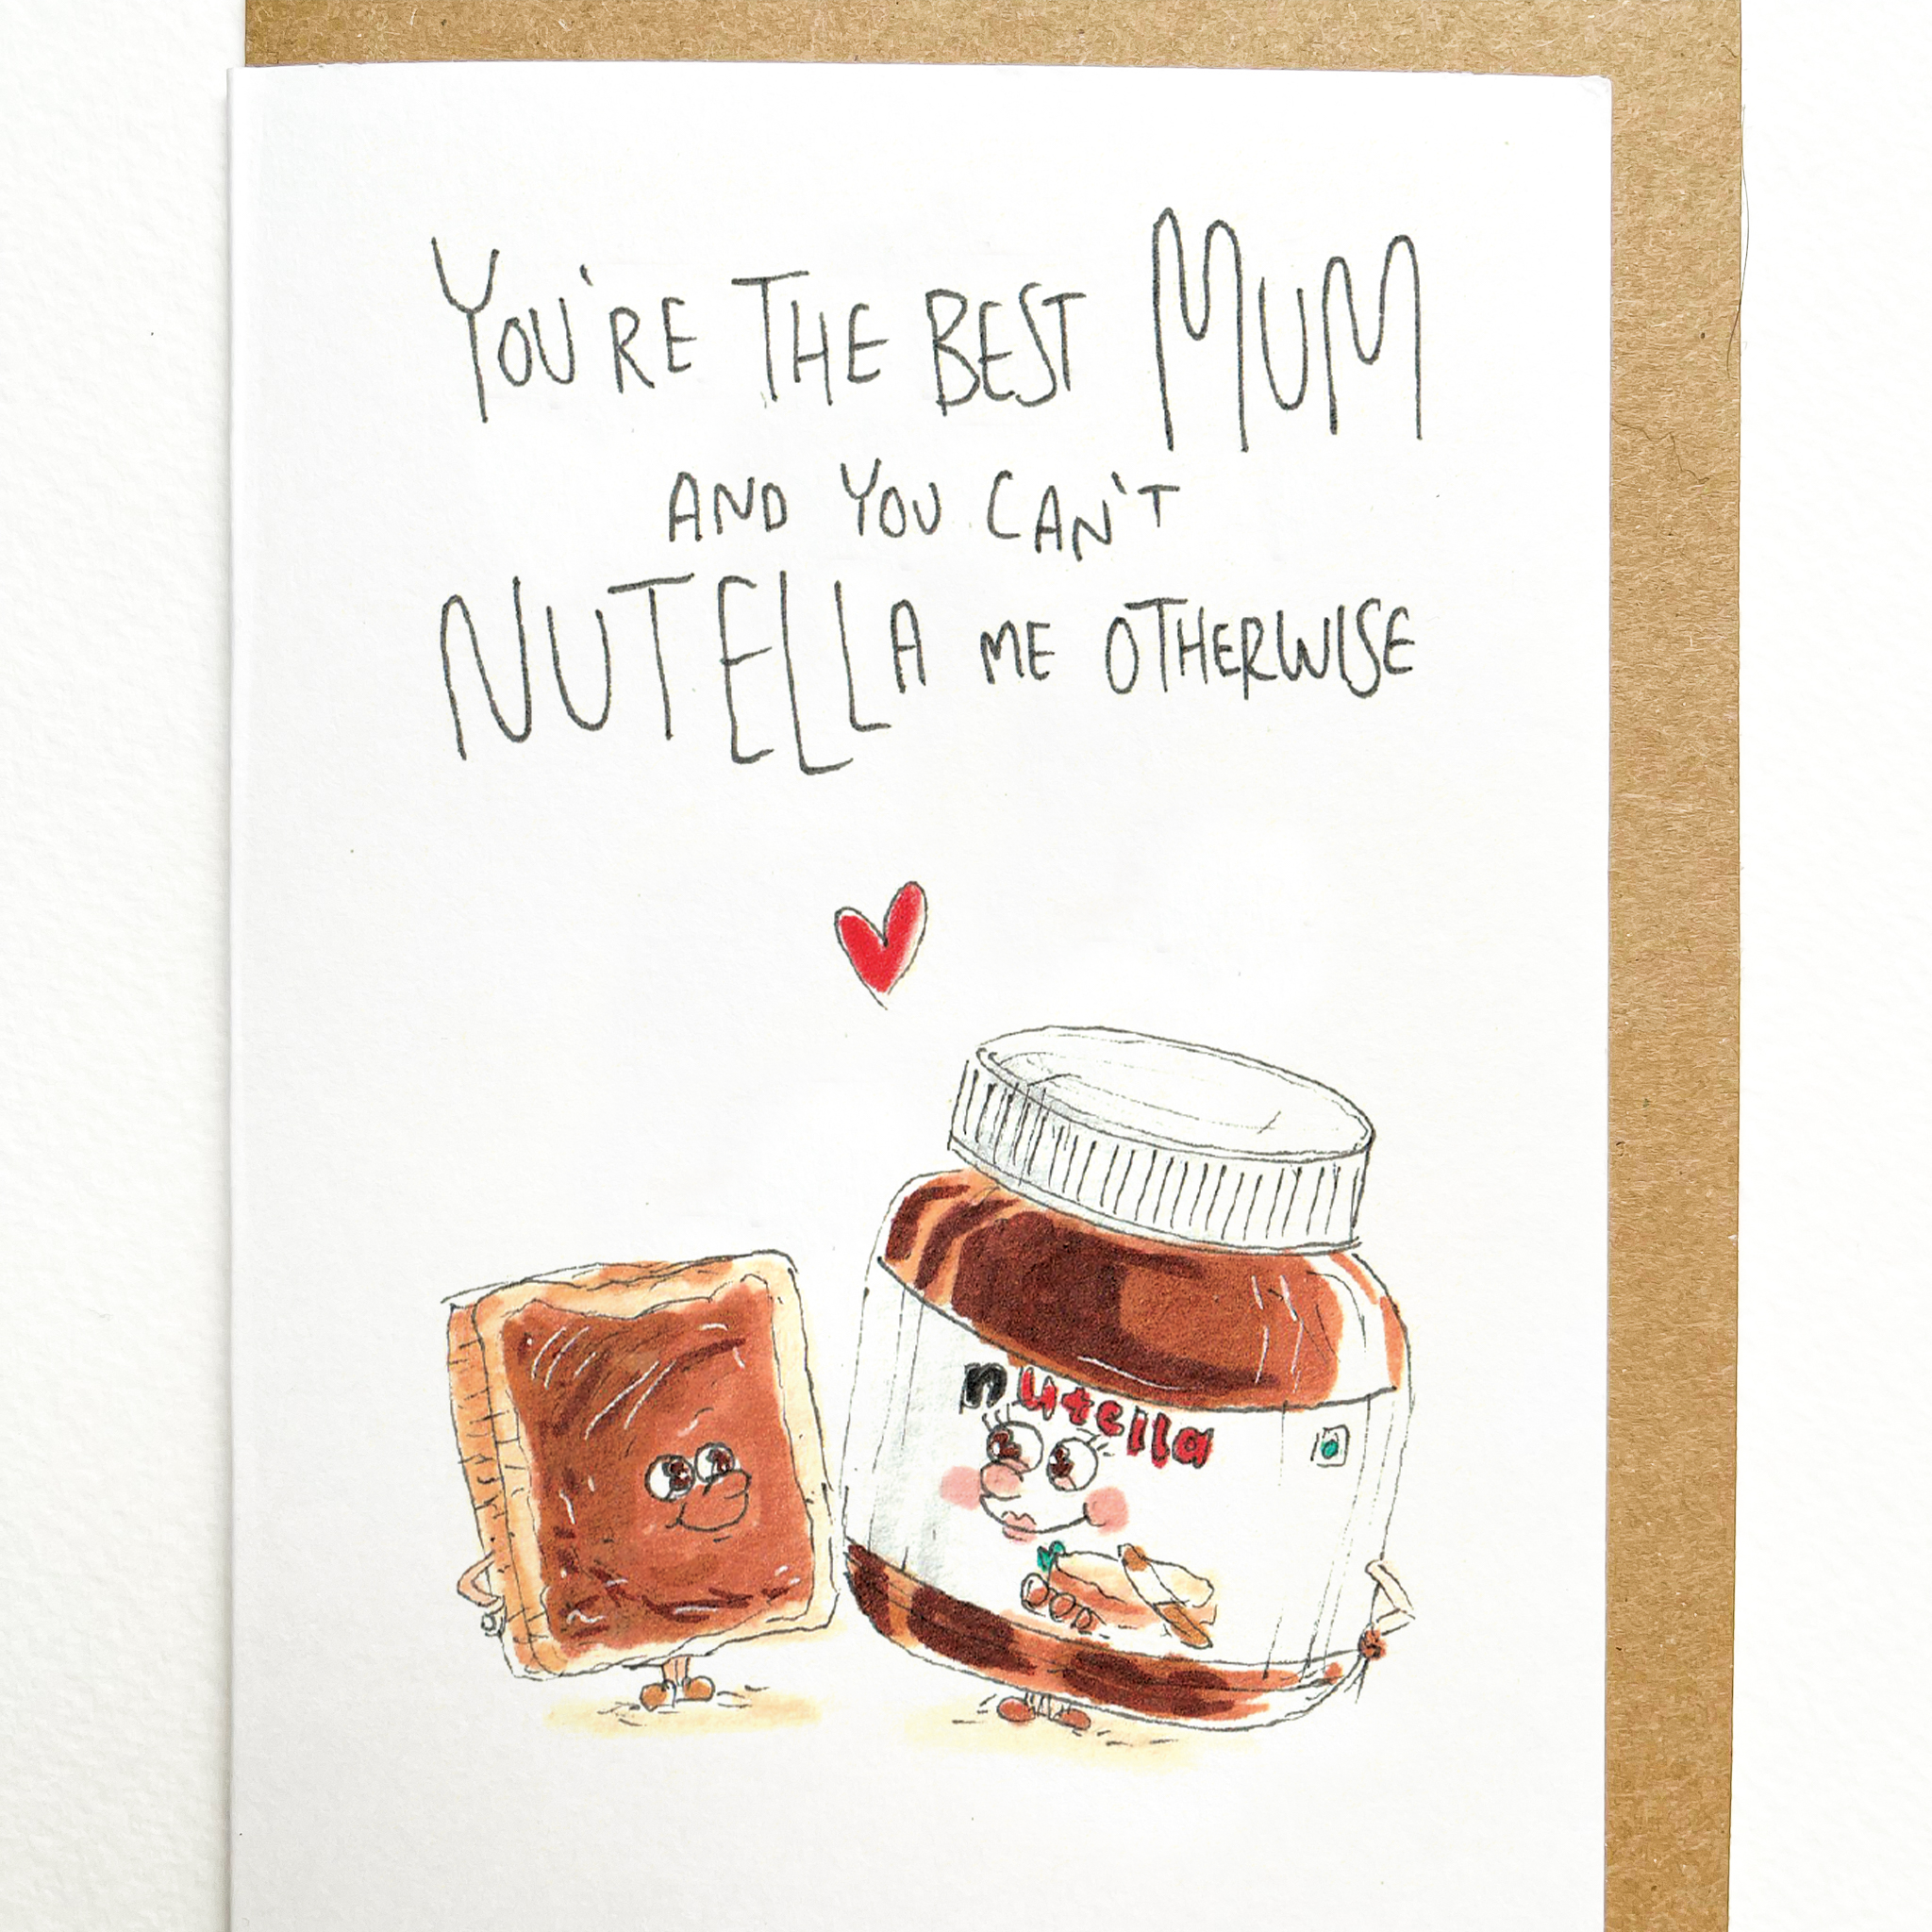 YOU'RE THE BEST MUM
AND YOU CAN'T
NUTELLA ME OTHERWISE
nutella